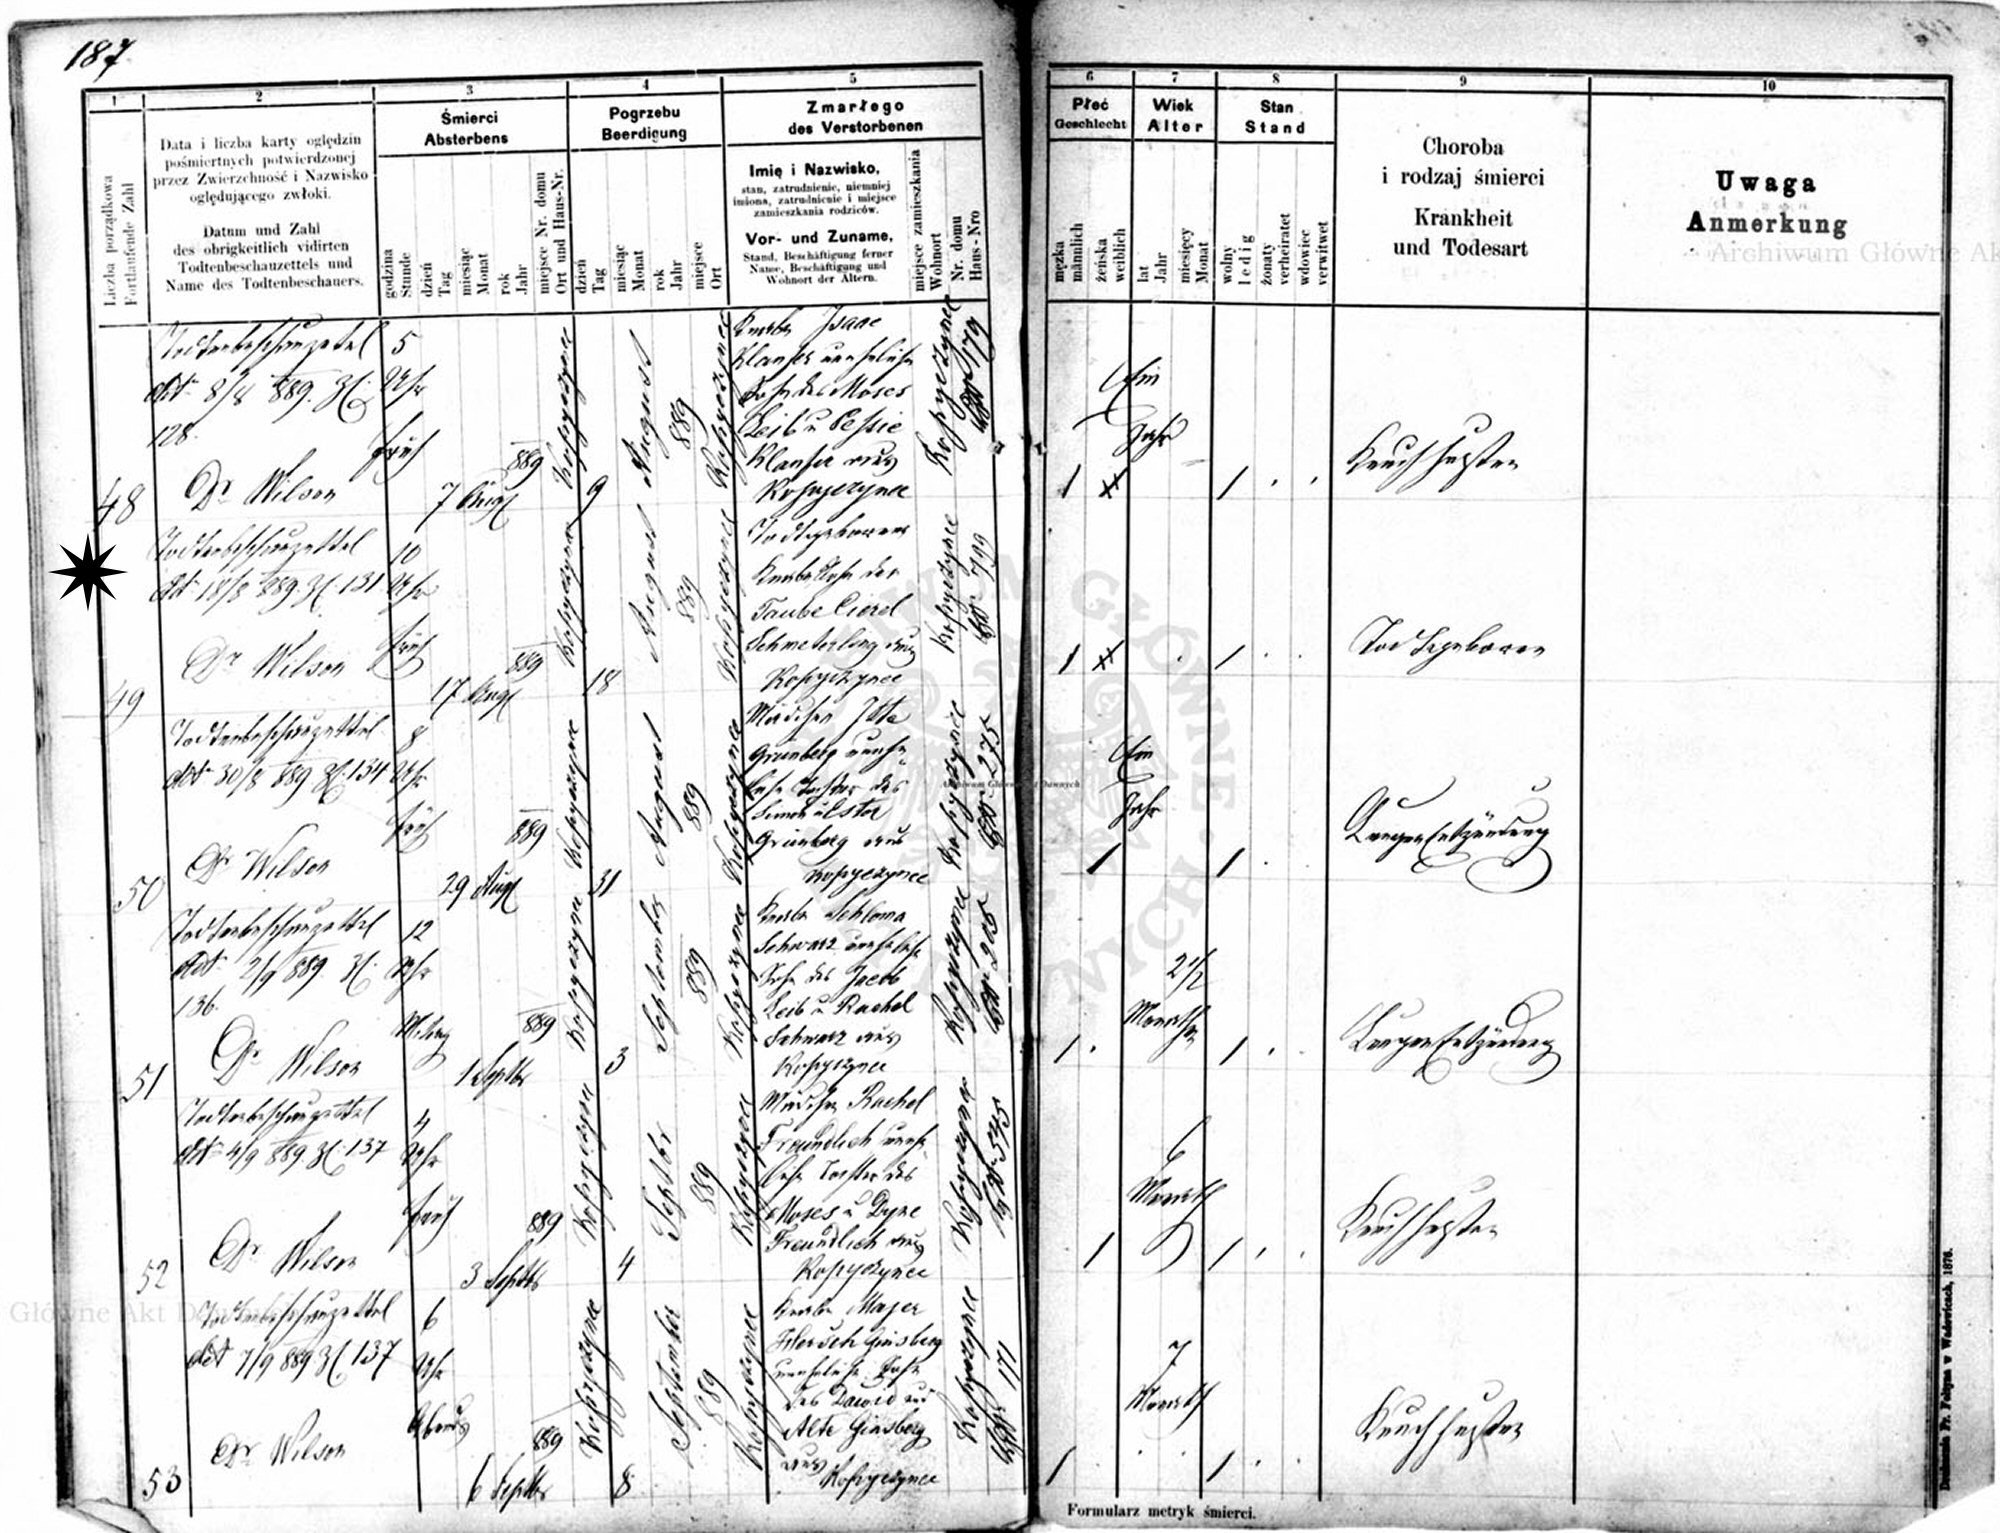 187
1
2
3
4
5
6
7
8
9
10
Liczba porządkowa
Fortlaufende Zahl
Data i liczba karty oględzin
pośmiertnych potwierdzonej
przez Zwierzchność i Nazwisko
oględującego zwłoki.
Datum und Zahl
des obrigkeitlich vidirten
Todtenbeschauzettels und
Name des Todtenbeschauers.
Śmierci
Absterbens
godzina
Stunde
dzień
Tag
miesiąc
Monat
rok
Jahr
miejsce Nr. domu
Ort und Haus-Nr.
Pogrzebu
Beerdigung
dzień
Tag
miesiąc
Monat
rok
Jahr
miejsce
Ort
Zmarłego
des Verstorbenen
Imię i Nazwisko,
stan, zatrudnienie, niemniej
imiona, zatrudnienie i miejsce
zamieszkania rodziców.
Vor- und Zuname,
Stand, Beschäftigung ferner
Name, Beschäftigung und
Wohnort der Ältern.
miejsce zamieszkania
Wohnort
Nr. domu
Haus-Nro
Płeć
Geschlecht
męzka
männlich
żeńska
weiblich
Wiek
Alter
lat
Jahr
miesięcy
Monat
Stan
Stand
wolny
ledig
żonaty
verheiratet
wdowiec
verwitwet
Choroba
i rodzaj śmierci
Krankheit
und Todesart
Uwaga
Anmerkung
Archiwum Główne Ak
48
Todtenbeschauzettel
ddt 8/8 889. Zl.
128.
Dr Wilson
5
Uhr
früh
7 Aug
889
Kopyczynce
9
August
889
Kopyczynce
Knabe Isaac
Klanfer
Sohn des Moses
Leib u Pessie
Klanfer aus
Kopyczynce
Kopyczynce
179
1
Ein
Jahr
1
Keuchhusten
49
Todtenbeschauzettel
ddt 18/8 889. Zl. 131
Dr Wilson
10
Uhr
früh
17 Aug
889
Kopyczynce
18
August
889
Kopyczynce
Todtgeborener
Knabe Sohn der
Taube Cierel
Schmeterling aus
Kopyczynce
Kopyczynce
799
1
1
Todtgeboren
50
Todtenbeschauzettel
ddt 30/8 889 Zl. 134
Dr Wilson
8
Uhr
früh
29 Aug
889
Kopyczynce
31
August
889
Kopyczynce
Mädchen Itte
Grünberg unehe-
liche Tochter des
Simon u Ester
Grünberg aus
Kopyczynce
Kopyczynce
275
1
Ein
Jahr
1
Lungenentzündung
51
Todtenbeschauzettel
ddt 2/9 889. Zl.
136.
Dr Wilson
12
Uhr
Mittag
1 Septbr
889
Kopyczynce
3
September
889
Kopyczynce
Knabe Schloma
Schwarz
Sohn des Jacob
Leib u Rachel
Schwarz aus
Kopyczynce
Kopyczynce
205
1
2 1/2
Monathe
1
Lungenentzündung
52
Todtenbeschauzettel
ddt 4/9 889 Zl. 137
Dr Wilson
4
Uhr
früh
3 Septbr
889
Kopyczynce
4
Septbr
889
Kopyczynce
Mädchen Rachel
Freundlich unehe-
liche Tochter des
Moses u Dyne
Freundlich aus
Kopyczynce
Kopyczynce
575
1
6
Monath
1
Keuchhusten
53
Todtenbeschauzettel
ddt 7/9 889 Zl. 137
Dr Wilson
6
Uhr
Abends
6 Septbr
889
Kopyczynce
8
September
889
Kopyczynce
Knabe Majer
Hersch Ginsberg
unehelicher Sohn
des Dawid und
Alte Ginsberg
aus
Kopyczynce
Kopyczynce
171
1
7
Monath
1
Keuchhusten
Główne Akt Dawnych
Formularz metryk śmierci.
Drukarnia Fr. Foltyna w Wadowicach, 1876.